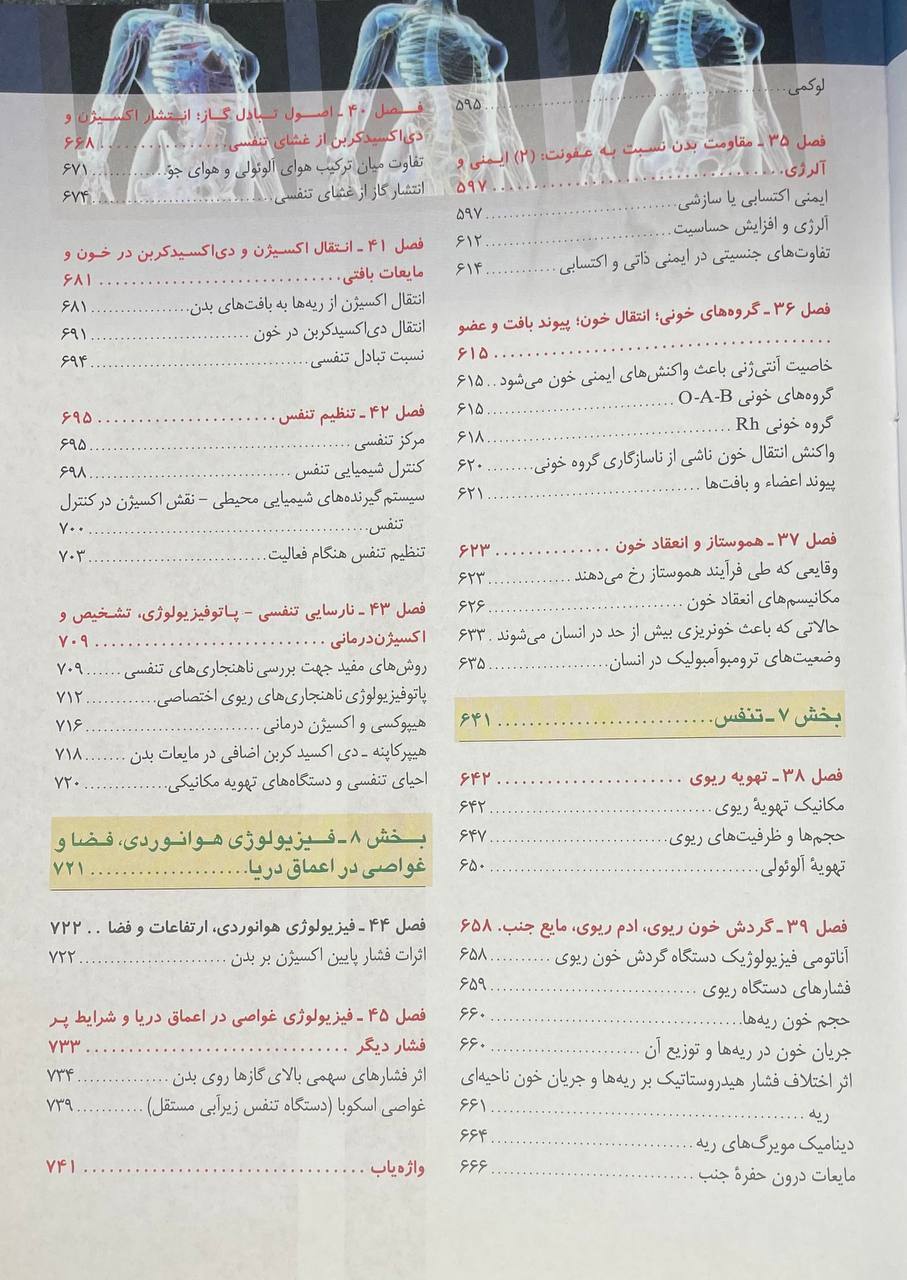 لوکمی ........ ۵۹۵
فصل ۳۵ ـ مقاومت بدن نسبت به عفونت: (۲) ایمنی و
آلرژی ........ ۵۹۷
ایمنی اکتسابی یا سازشی ........ ۵۹۷
آلرژی و افزایش حساسیت ........ ۶۱۲
تفاوت‌های جنسیتی در ایمنی ذاتی و اکتسابی ........ ۶۱۴
فصل ۳۶ ـ گروه‌های خونی؛ انتقال خون؛ پیوند بافت و عضو
........ ۶۱۵
خاصیت آنتی‌ژنی باعث واکنش‌های ایمنی خون می‌شود .. ۶۱۵
گروه‌های خونی O-A-B ........ ۶۱۵
گروه خونی Rh ........ ۶۱۸
واکنش انتقال خون ناشی از ناسازگاری گروه خونی ........ ۶۲۰
پیوند اعضاء و بافت‌ها ........ ۶۲۱
فصل ۳۷ ـ هموستاز و انعقاد خون ........ ۶۲۳
وقایعی که طی فرآیند هموستاز رخ می‌دهند ........ ۶۲۳
مکانیسم‌های انعقاد خون ........ ۶۲۶
حالاتی که باعث خونریزی بیش از حد در انسان می‌شوند . ۶۳۳
وضعیت‌های ترومبوآمبولیک در انسان ........ ۶۳۵
بخش ۷ ـ تنفس ........ ۶۴۱
فصل ۳۸ ـ تهویه ریوی ........ ۶۴۲
مکانیک تهویهٔ ریوی ........ ۶۴۲
حجم‌ها و ظرفیت‌های ریوی ........ ۶۴۷
تهویهٔ آلوئولی ........ ۶۵۰
فصل ۳۹ ـ گردش خون ریوی، ادم ریوی، مایع جنب. ۶۵۸
آناتومی فیزیولوژیک دستگاه گردش خون ریوی ........ ۶۵۸
فشارهای دستگاه ریوی ........ ۶۵۹
حجم خون ریه‌ها ........ ۶۶۰
جریان خون در ریه‌ها و توزیع آن ........ ۶۶۰
اثر اختلاف فشار هیدروستاتیک بر ریه‌ها و جریان خون ناحیه‌ای
ریه ........ ۶۶۱
دینامیک مویرگ‌های ریه ........ ۶۶۴
مایعات درون حفرهٔ جنب ........ ۶۶۶
فصل ۴۰ ـ اصول تبادل گاز؛ انتشار اکسیژن و
دی‌اکسیدکربن از غشای تنفسی ........ ۶۶۸
تفاوت میان ترکیب هوای آلوئولی و هوای جوّ ........ ۶۷۱
انتشار گاز از غشای تنفسی ........ ۶۷۴
فصل ۴۱ ـ انتقال اکسیژن و دی‌اکسیدکربن در خون و
مایعات بافتی ........ ۶۸۱
انتقال اکسیژن از ریه‌ها به بافت‌های بدن ........ ۶۸۱
انتقال دی‌اکسیدکربن در خون ........ ۶۹۱
نسبت تبادل تنفسی ........ ۶۹۴
فصل ۴۲ ـ تنظیم تنفس ........ ۶۹۵
مرکز تنفسی ........ ۶۹۵
کنترل شیمیایی تنفس ........ ۶۹۸
سیستم گیرنده‌های شیمیایی محیطی – نقش اکسیژن در کنترل
تنفس ........ ۷۰۰
تنظیم تنفس هنگام فعالیت ........ ۷۰۳
فصل ۴۳ ـ نارسایی تنفسی – پاتوفیزیولوژی، تشخیص و
اکسیژن‌درمانی ........ ۷۰۹
روش‌های مفید جهت بررسی ناهنجاری‌های تنفسی ........ ۷۰۹
پاتوفیزیولوژی ناهنجاری‌های ریوی اختصاصی ........ ۷۱۲
هیپوکسی و اکسیژن درمانی ........ ۷۱۶
هیپرکاپنه ـ دی اکسید کربن اضافی در مایعات بدن ........ ۷۱۸
احیای تنفسی و دستگاه‌های تهویه مکانیکی ........ ۷۲۰
بخش ۸ ـ فیزیولوژی هوانوردی، فضا و
غواصی در اعماق دریا ........ ۷۲۱
فصل ۴۴ ـ فیزیولوژی هوانوردی، ارتفاعات و فضا .. ۷۲۲
اثرات فشار پایین اکسیژن بر بدن ........ ۷۲۲
فصل ۴۵ ـ فیزیولوژی غواصی در اعماق دریا و شرایط پر
فشار دیگر ........ ۷۳۳
اثر فشارهای سهمی بالای گازها روی بدن ........ ۷۳۴
غواصی اسکوبا (دستگاه تنفس زیرآبی مستقل) ........ ۷۳۹
واژه‌یاب ........ ۷۴۱